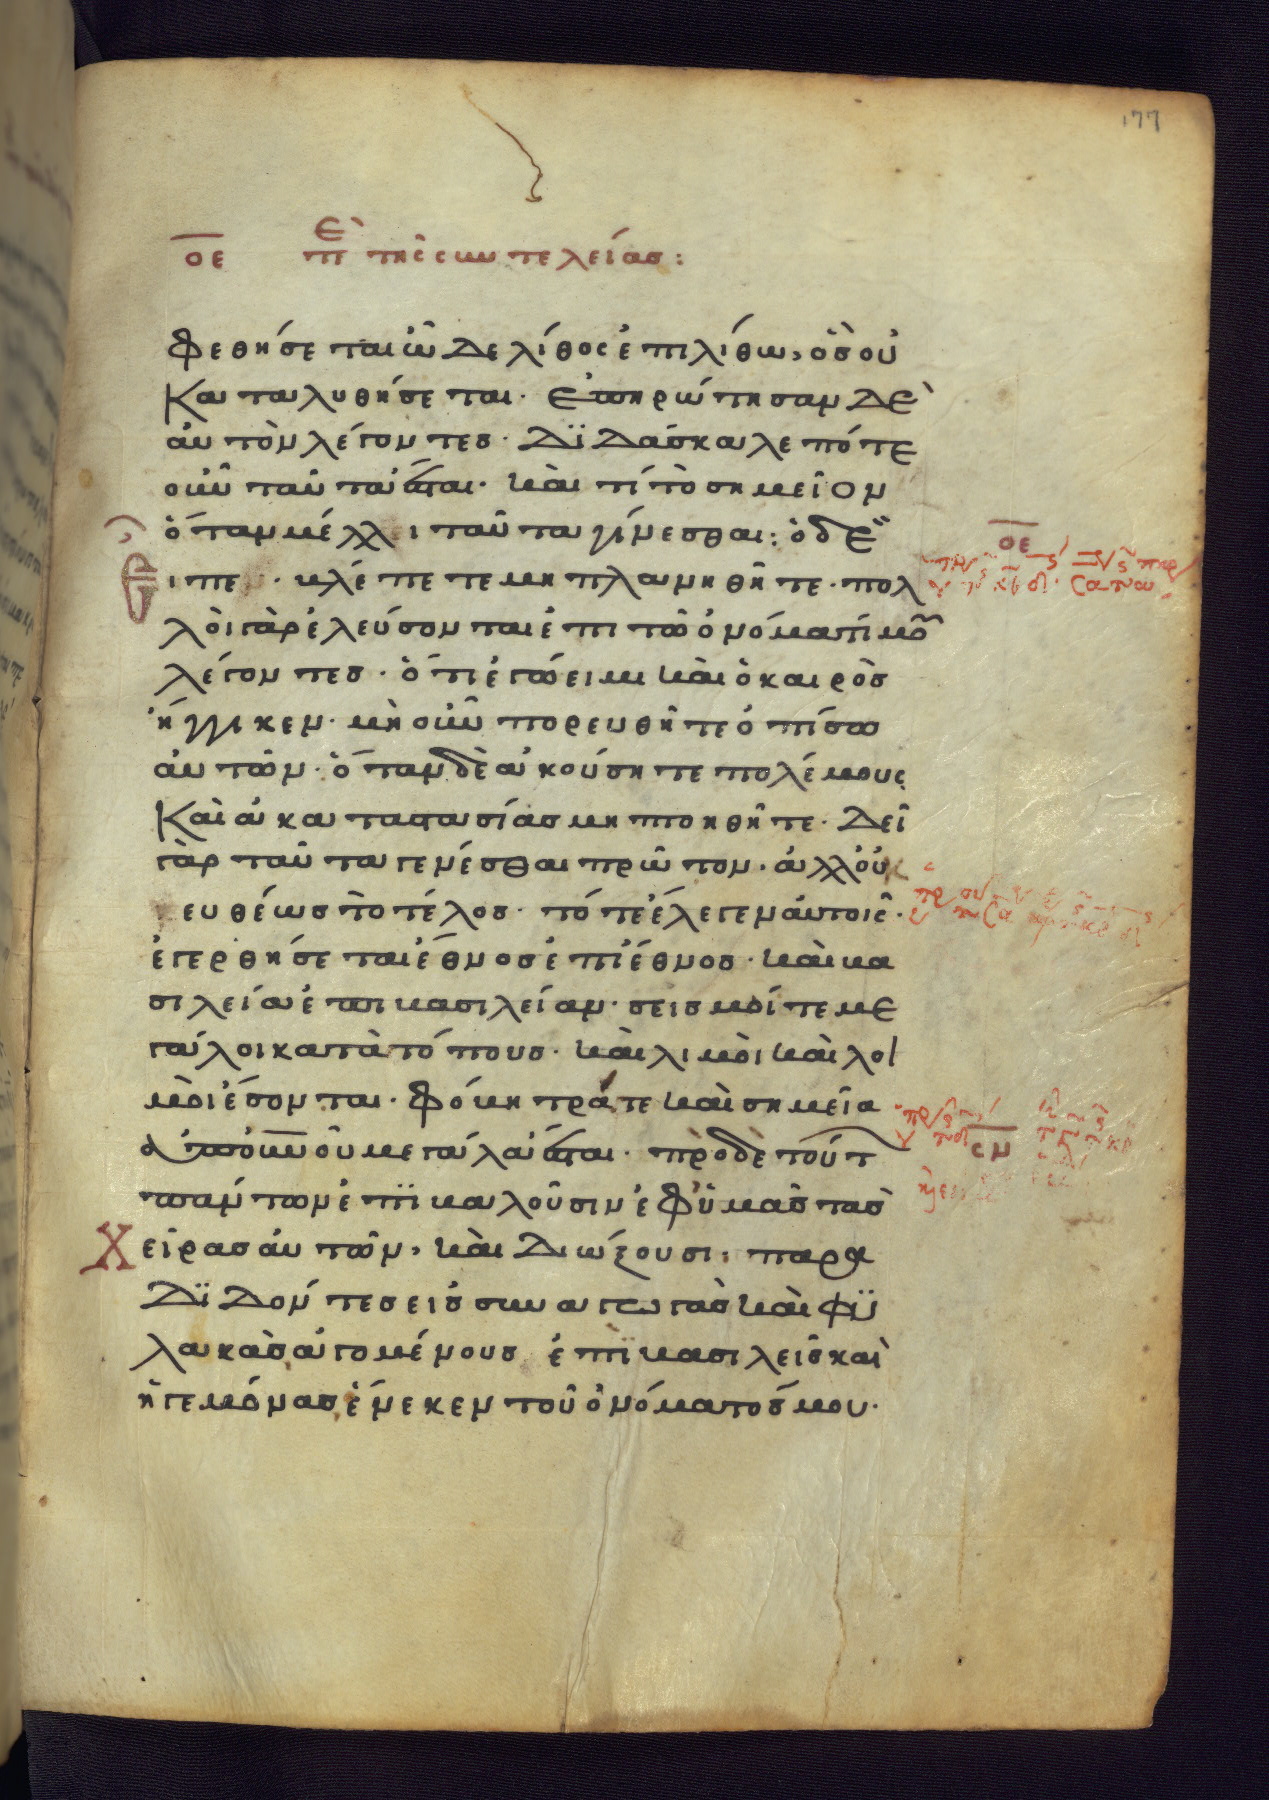 177
οε επὶ τῆς συντελείας:
φεθήσεται ὧδε λίθος ἐπὶ λίθω, ὃς οὐ
καταλυθήσεται. Ἐπηρώτησαν δὲ
αὐτὸν λέγοντες. Διδάσκαλε πότε
οὖν ταῦτα ἔσται. καὶ τί τὸ σημεῖον
ὅταν μέλλει ταῦτα γίνεσθαι: ὁ δὲ
εἶπε. βλέπετε μὴ πλανηθῆτε. πολ
λοὶ γὰρ ἐλεύσονται ἐπὶ τῶ ὀνόματί μου
λέγοντες. ὅτι ἐγώ εἰμι καὶ ὁ καιρὸς
ἤγγικεν. μὴ οὖν πορευθῆτε ὀπίσω
αὐτῶν. ὅταν δὲ ἀκούσητε πολέμους
καὶ ἀκαταστασίας μὴ πτοηθῆτε. Δεῖ
γὰρ ταῦτα γενέσθαι πρῶτον. ἀλλ' οὐκ
εὐθέως τὸ τέλος. τότε ἔλεγεν αὐτοῖς.
ἐγερθήσεται ἔθνος ἐπὶ ἔθνος. καὶ βα
σιλεία ἐπὶ βασιλείαν. σεισμοί τε με
γάλοι κατὰ τόπους. καὶ λιμοὶ καὶ λοι
μοὶ ἔσονται. φόβητρά τε καὶ σημεῖα
ἀπὸ οὐνοῦ μεγάλα ἔσται. πρὸ δὲ τούτ
πάντων ἐπιβαλοῦσιν ἐφ' ὑμᾶς τὰς
χεῖρας αὐτῶν, καὶ διώξουσι, παρα
διδόντες εἰς συναγωγὰς καὶ φυ
λακὰς ἀγομένους ἐπὶ βασιλεῖς καὶ
ἡγεμόνας ἕνεκεν τοῦ ὀνόματός μου.
οε
σν